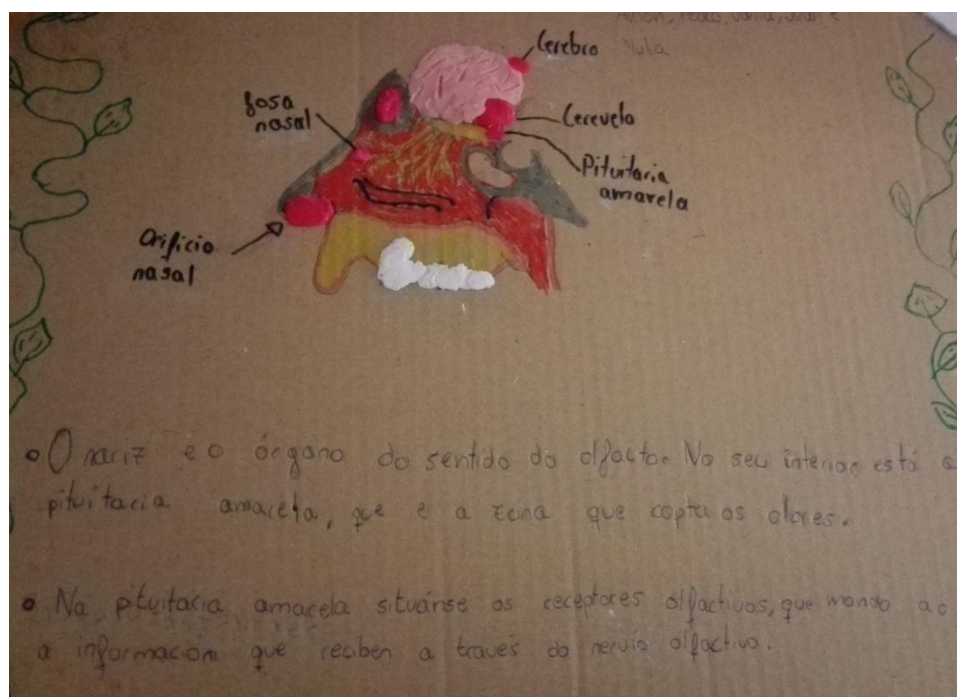 Yuba
Cerebro
fosa
nasal
Cerevelo
Pituitaria
amarela
Orificio
nasal
O nariz e o órgano do sentido do olfacto. No seu interior está a
pituitaria amarela, que e a zona que capta os olores.
Na pituitaria amarela sitúanse os receptores olfactivos, que manda ao
a información que reciben a través do nervio olfactivo.